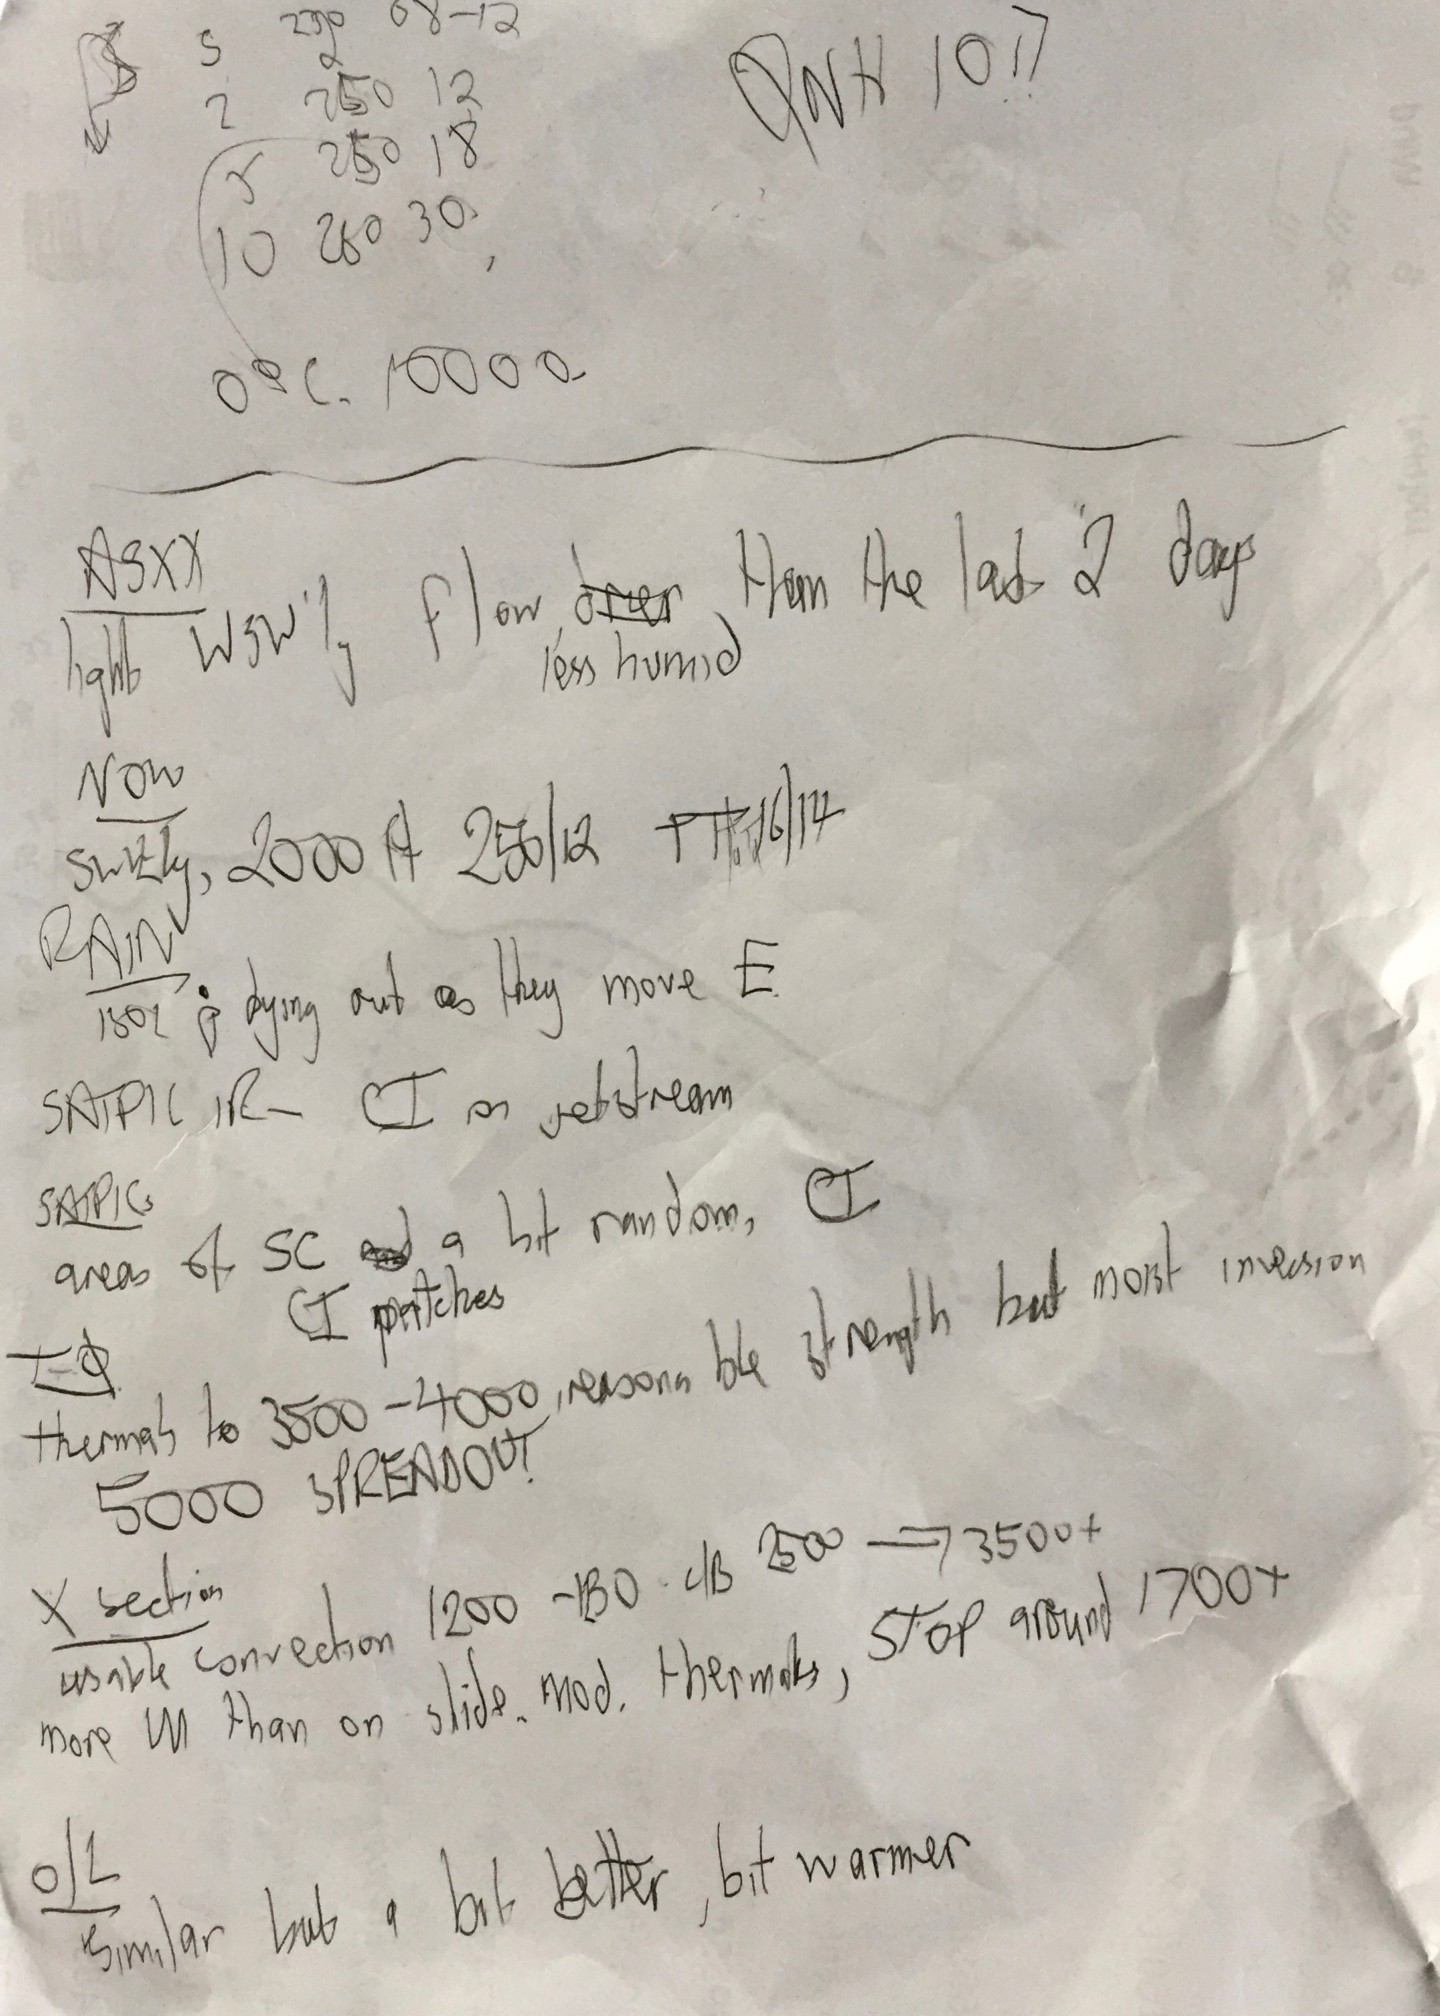 S 290 08-12
2 250 12
5 250 18
10 260 30
QNH 1017
0°C. 10000
ASXX
light WSW'ly flow, drier than the last 2 days
less humid
NOW
SW'ly, 2000 ft 250/12 16/14
RAIN
isol dying out as they move E
SATPIC IR - CI on jetstream
SATPICs
areas of SC a bit random, CI
CI patches
T-Φ
thermals to 3500-4000, reasonable strength but moist inversion
5000 SPREADOUT
X section
usable convection 1200 - C/B 2500 ⇒ 3500+
more than on slide. mod. thermals, STOP around 1700+
O/L
Similar but a bit better, bit warmer